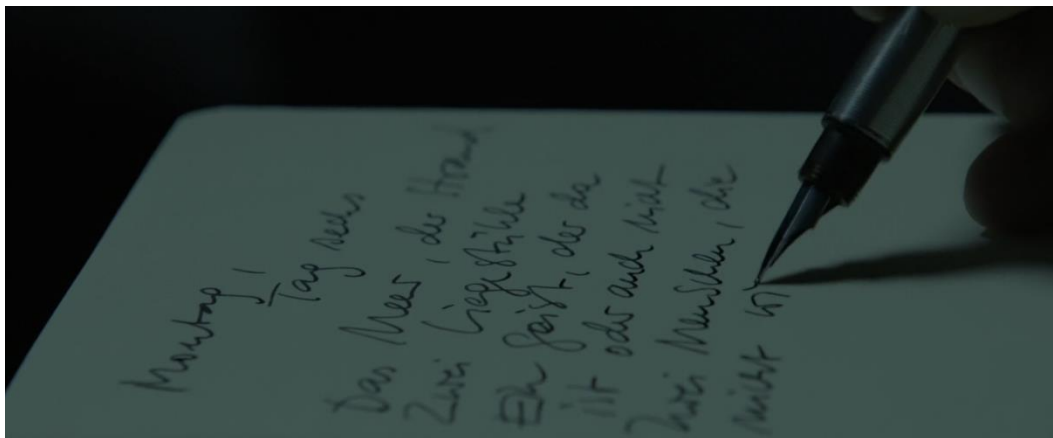 Montag,
Tag sechs
Das Meer, der Strand
Zwei Liegestühle
Ein Geist, der da
ist oder auch nicht
Zwei Menschen, die
nicht